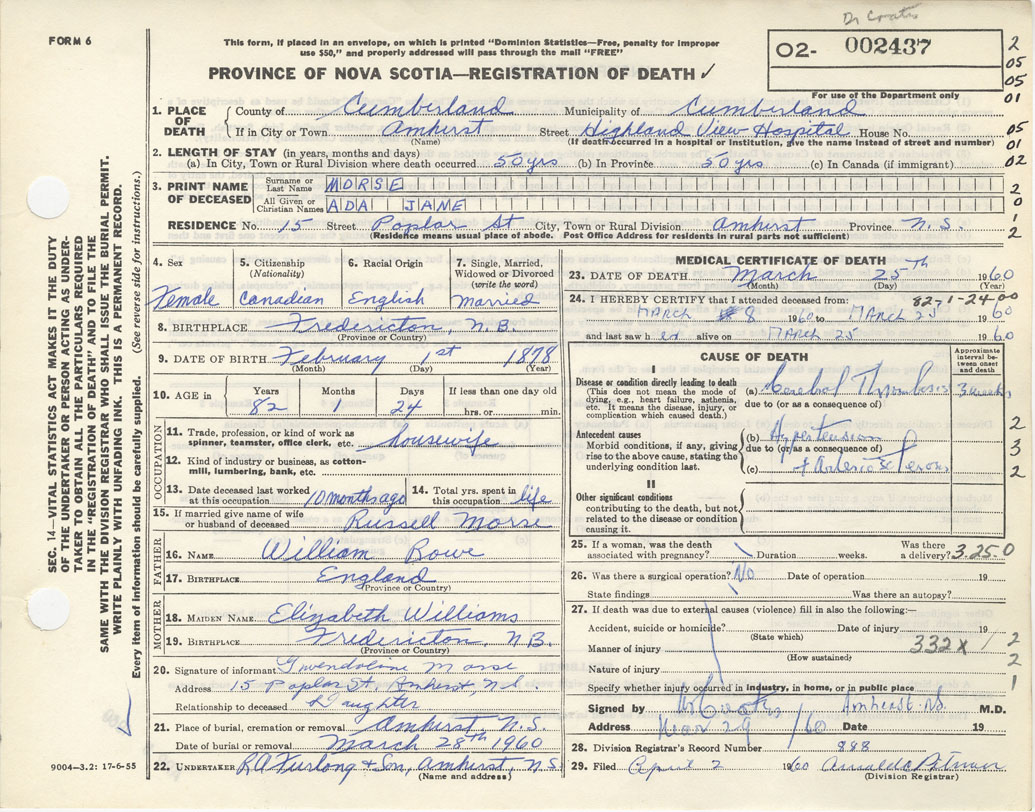 Dr Coates
FORM 6
This form, if placed in an envelope, on which is printed "Dominion Statistics—Free, penalty for improper
use $50," and properly addressed will pass through the mail "FREE"
O2- 002437
For use of the Department only
PROVINCE OF NOVA SCOTIA—REGISTRATION OF DEATH ✓
2
05
05
01
05
01
02
2
0
1
2
1. PLACE OF DEATH
County of Cumberland Municipality of Cumberland
If in City or Town Amherst Street Highland View Hospital House No.
(Name) (If death occurred in a hospital or institution, give the name instead of street and number)
2. LENGTH OF STAY (in years, months and days)
(a) In City, Town or Rural Division where death occurred 50 yrs (b) In Province 50 yrs (c) In Canada (if immigrant)
3. PRINT NAME OF DECEASED
Surname or Last Name MORSE
All Given or Christian Names ADA JANE
RESIDENCE No. 15 Street Poplar St City, Town or Rural Division Amherst Province N.S.
(Residence means usual place of abode. Post Office Address for residents in rural parts not sufficient)
SEC. 14—VITAL STATISTICS ACT MAKES IT THE DUTY
OF THE UNDERTAKER OR PERSON ACTING AS UNDER-
TAKER TO OBTAIN ALL THE PARTICULARS REQUIRED
IN THE "REGISTRATION OF DEATH" AND TO FILE THE
SAME WITH THE DIVISION REGISTRAR WHO SHALL ISSUE THE BURIAL PERMIT.
WRITE PLAINLY WITH UNFADING INK. THIS IS A PERMANENT RECORD.
Every item of information should be carefully supplied. (See reverse side for instructions.)
4. Sex Female
5. Citizenship (Nationality) Canadian
6. Racial Origin English
7. Single, Married, Widowed or Divorced (write the word) Married
8. BIRTHPLACE Fredericton, N.B.
(Province or Country)
9. DATE OF BIRTH February 1st 1878
(Month) (Day) (Year)
10. AGE in Years 82 Months 1 Days 24 If less than one day old hrs. or min.
OCCUPATION
11. Trade, profession, or kind of work as
spinner, teamster, office clerk, etc. housewife
12. Kind of industry or business, as cotton-
mill, lumbering, bank, etc.
13. Date deceased last worked
at this occupation 10 months ago
14. Total yrs. spent in
this occupation life
15. If married give name of wife
or husband of deceased Russell Morse
FATHER
16. NAME William Rowe
17. BIRTHPLACE England
(Province or Country)
MOTHER
18. MAIDEN NAME Elizabeth Williams
19. BIRTHPLACE Fredericton, N.B.
(Province or Country)
20. Signature of informant Gwendoline Morse
Address 15 Poplar St, Amherst, N.S.
Relationship to deceased Daughter
21. Place of burial, cremation or removal Amherst N.S.
Date of burial or removal March 28th 1960
22. UNDERTAKER R.A. Furlong & Son, Amherst, N.S.
(Name and address)
9004—3.2: 17-6-55
MEDICAL CERTIFICATE OF DEATH
23. DATE OF DEATH March 25th 1960
(Month) (Day)
82-1-24-00
24. I HEREBY CERTIFY that I attended deceased from:
MARCH 8 1960 to MARCH 25 1960
and last saw her alive on MARCH 25 1960
CAUSE OF DEATH
Approximate interval between onset and death
I
Disease or condition directly leading to death
(This does not mean the mode of
dying, e.g., heart failure, asthenia,
etc. It means the disease, injury, or
complication which caused death.)
(a) Cerebral Thrombosis 3 weeks
due to (or as a consequence of)
Antecedent causes
Morbid conditions, if any, giving
rise to the above cause, stating the
underlying condition last.
(b) Hypertension
due to (or as a consequence of)
(c) + Arteriosclerosis
2
3
2
II
Other significant conditions
contributing to the death, but not
related to the disease or condition
causing it.
25. If a woman, was the death
associated with pregnancy? Duration weeks. Was there a delivery? 3.25.0
26. Was there a surgical operation? No Date of operation 19
State findings Was there an autopsy?
27. If death was due to external causes (violence) fill in also the following:—
Accident, suicide or homicide? Date of injury 19
(State which)
Manner of injury 332X
(How sustained)
Nature of injury
Specify whether injury occurred in industry, in home, or in public place
2
2
1
Signed by Coates Amherst N.S. M.D.
Address Mar 29 /60 Date 19
28. Division Registrar's Record Number 888
29. Filed April 2 1960
(Division Registrar)